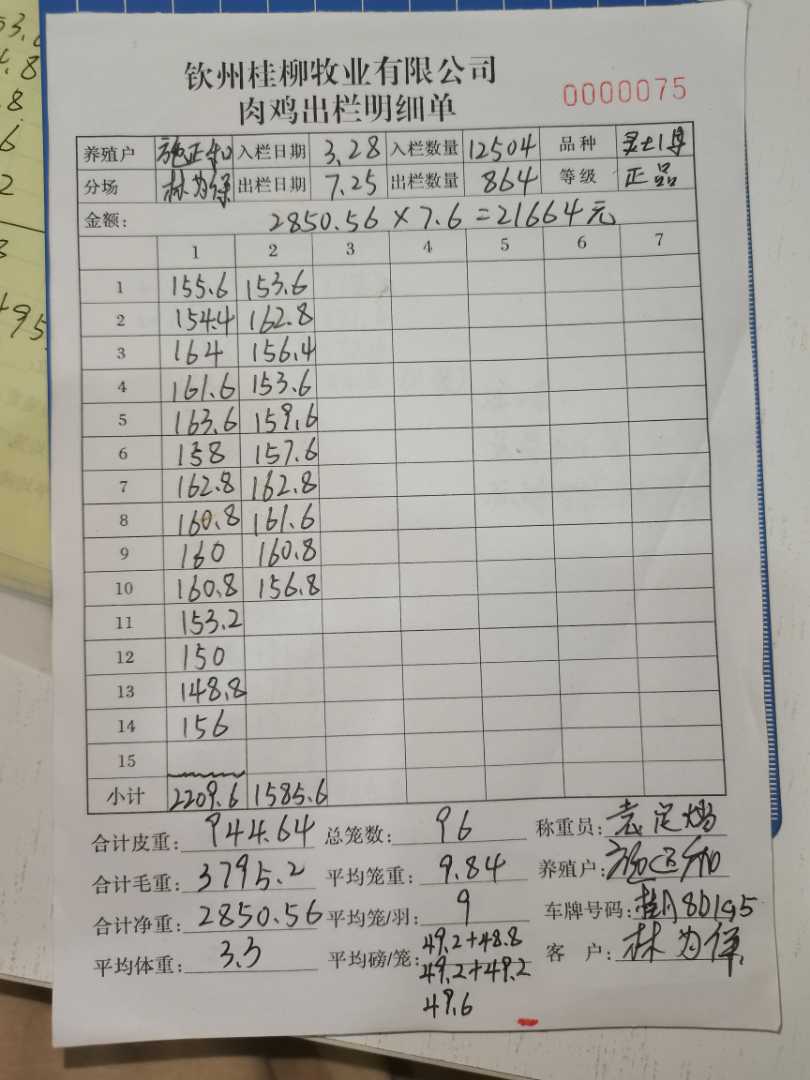 钦州桂柳牧业有限公司
肉鸡出栏明细单 0000075
养殖户 施正和 入栏日期 3.28 入栏数量 12504 品种
分场 林为保 出栏日期 7.25 出栏数量 864 等级 正品
金额: 2850.56 × 7.6 = 21664元
1 2 3 4 5 6 7
1 155.6 153.6
2 154.4 162.8
3 164 156.4
4 161.6 153.6
5 163.6 159.6
6 158 157.6
7 162.8 162.8
8 160.8 161.6
9 160 160.8
10 160.8 156.8
11 153.2
12 150
13 148.8
14 156
15
小计 2209.6 1585.6
合计皮重: 944.64 总笼数: 96 称重员:
合计毛重: 3795.2 平均笼重: 9.84 养殖户:
合计净重: 2850.56 平均笼/羽: 9 车牌号码:
平均体重: 3.3 平均磅/笼: 49.2+48.8 客 户: 林为保
49.2+49.2
49.6